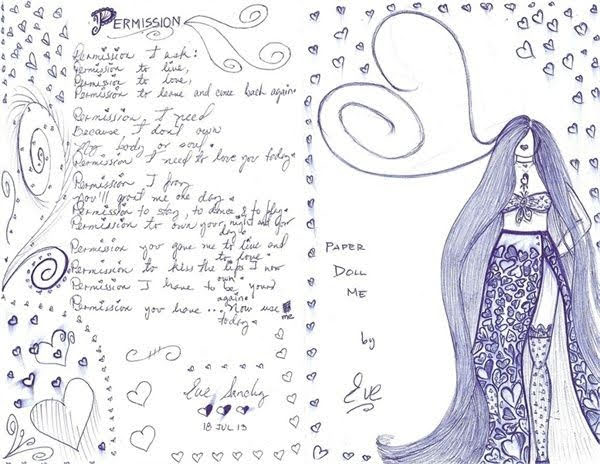 PERMISSION
Permission I ask:
Permission to live,
Permission to love,
Permission to leave and come back again.
Permission I need
Because I don't own
My body or soul.
Permission I need to love you today.
Permission I pray
You'll grant me one day.
Permission to stay, to dance & to fly.
Permission to own your night and your
day.
Permission you gave me to live and
to love.
Permission to kiss the lips I now
own.
Permission I have to be yours
again.
Permission you have ... Now use
me
today.
Eve Sanchz
18 JUL 13
PAPER
DOLL
ME
by
Eve